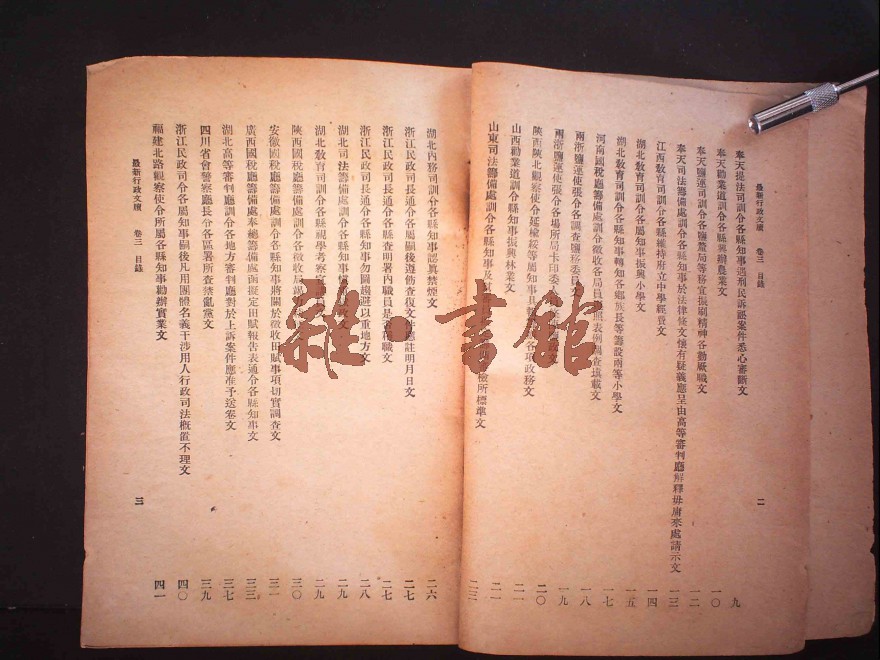 最新行政文牘 卷三 目錄 二
奉天提法司訓令各縣知事遇刑民訴訟案件悉心審斷文 九
奉天勸業道訓令各縣興辦農業文 一〇
奉天鹽運司訓令各鹽釐局等務宜振刷精神各勤厥職文 一二
奉天司法籌備處訓令各縣知事於法律條文懷有疑義應呈由高等審判廳解釋毋庸來處請示文 一三
江西敎育司訓令各縣維持府立中學經費文 一四
湖北敎育司訓令各屬知事振興小學文 一五
湖北敎育司訓令各縣知事轉知各鄉族長等籌設兩等小學文 一七
河南國稅廳籌備處訓令徵收各局員 照表例 查填載文 一八
兩浙鹽運使張令各調查鹽務委員 文 一九
兩浙鹽運使張令各場所局卡印委 文
陝西陝北觀察使令延楡綏等屬知事具 各項政務文 二〇
山西勸業道訓令縣知事振興林業文 二一
山東司法籌備處訓令各縣知事及 檢所標準文 二三
湖北內務司訓令各縣知事認眞禁煙文 二六
浙江民政司長通令各屬嗣後遵飭查復文件應註明月日文 二七
浙江民政司長通令各縣查明署內職員是 職文 二七
浙江民政司長通令各縣知事勿圖趨避以重地方文 二八
湖北司法籌備處訓令各縣知事 政文 二九
湖北敎育司訓令各縣視學考察 文 二九
陝西國稅廳籌備處訓令各徵收局 文 三〇
安徽國稅廳籌備處訓令各縣知事將關於徵收田賦事項切實調查文 三一
廣西國稅廳籌備處奉總籌備處函 定田賦報告表通令各縣知事文 三三
湖北高等審判廳訓令各地方審判廳對於上訴案件應准予送卷文 三七
四川省會警察廳長令各區署所查禁亂黨文 三九
浙江民政司令各屬知事嗣後凡用團體名義干涉用人行政司法槪置不理文 四〇
福建北路觀察使令所屬各縣知事勸辦實業文 四一
最新行政文牘 卷三 目錄 三
雜·書館